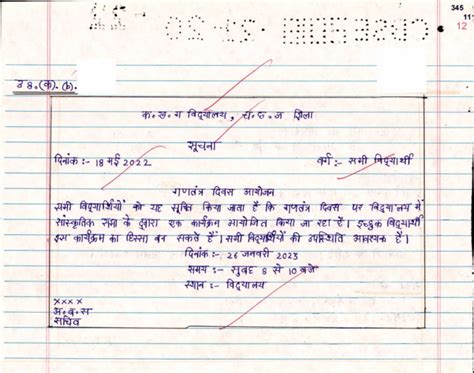 345
11
12
उ 8.(क).(b).
क.ख.ग विद्यालय, च.छ.ज ज़िला
सूचना
दिनांक :- 18 मई 2022 वर्ग :- सभी विद्यार्थी
गणतंत्र दिवस आयोजन
सभी विद्यार्थियों को यह सूचित किया जाता है कि गणतंत्र दिवस पर विद्यालय में
सांस्कृतिक सभा के द्वारा एक कार्यक्रम आयोजित किया जा रहा है। इच्छुक विद्यार्थी
इस कार्यक्रम का हिस्सा बन सकते हैं। सभी विद्यार्थियों की उपस्थिति आवश्यक है।
दिनांक :- 26 जनवरी 2023
समय :- सुबह 8 से 10 बजे
स्थान :- विद्यालय
xxxx
अ.ब.स
सचिव